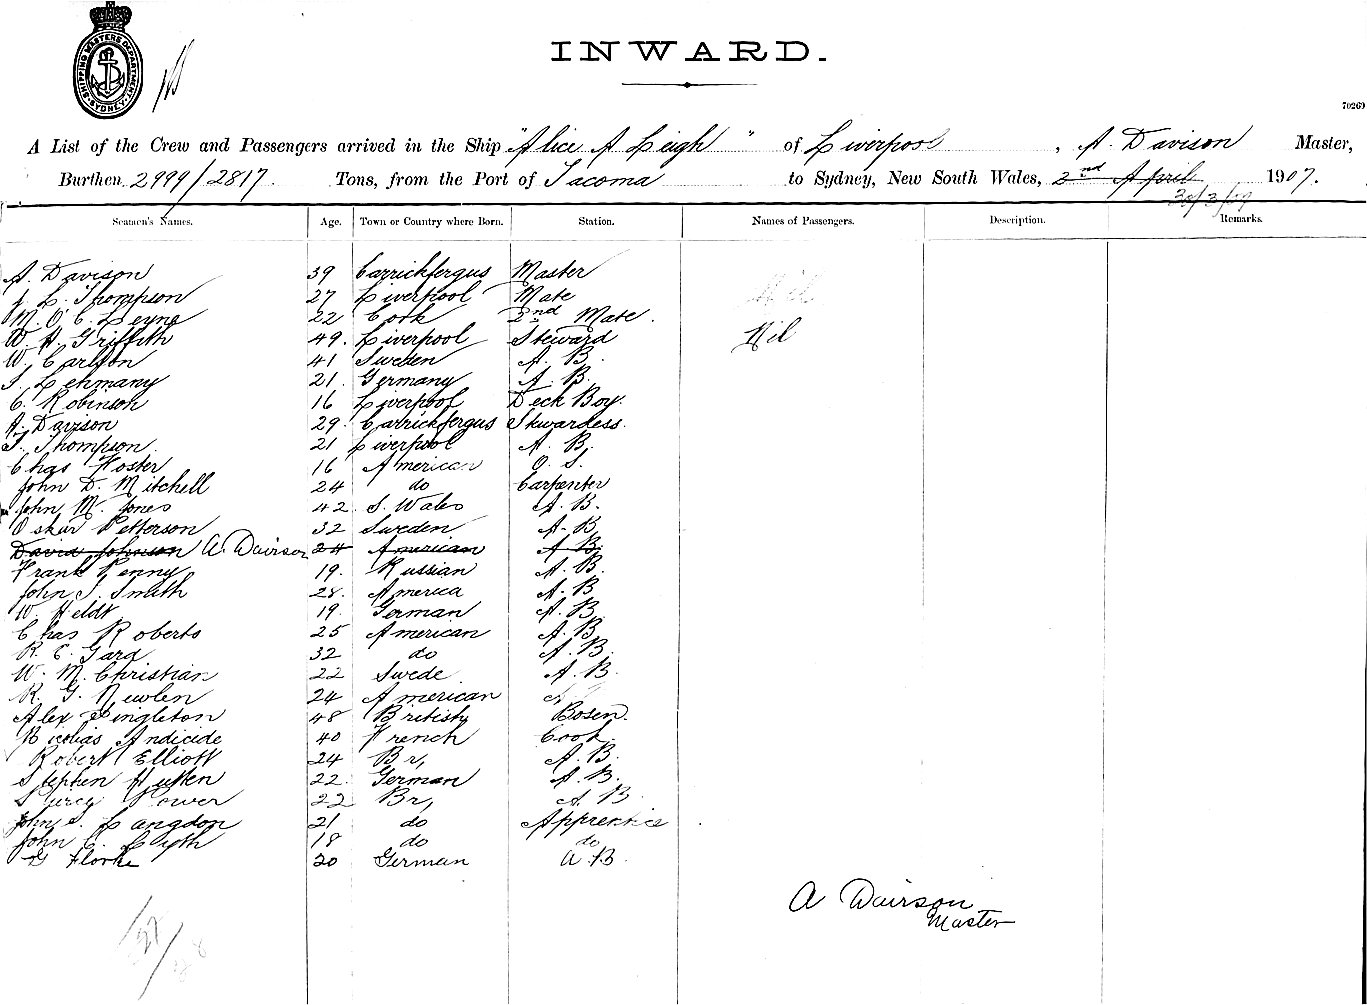 SHIPPING MASTERS DEPARTMENT SYDNEY
INWARD.
70269
A List of the Crew and Passengers arrived in the Ship "Alice A Leigh" of Liverpool, A. Davison Master,
Burthen 2999/2817 Tons, from the Port of Tacoma to Sydney, New South Wales, 2nd April 1907.
30/3/07
Seamen's Names. Age. Town or Country where Born. Station. Names of Passengers. Description. Remarks.
A. Davison 39 Carrickfergus Master
J. L. Thompson 27 Liverpool Mate Nil
M. O'C. Leyne 22 Cork 2nd Mate.
W. H. Griffith 49. Liverpool Steward Nil
W. Carlson 41 Sweden A. B.
Lehmany 21. Germany A. B.
C. Robinson 16 Liverpool Deck Boy.
A. Davison 29. Carrickfergus Stewardess.
T. Thompson. 21 Liverpool A. B.
Chas Foster 16 American O. S.
John D. Mitchell 24 do Carpenter
John M. Jones 42 S. Wales A. B.
Oskar Petterson 32 Sweden A. B
David Johnson A. Davison 24 American A B.
Frank Penny 19. Russian A. B.
John S. Smith 28. America A. B
W. Heldt 19. German A. B.
Chas Roberts 25 American A. B
R. E. Gard 32 do A. B.
W. M. Christian 22 Swede A. B.
R. G. Newlen 24 American A
Alex Singleton 48 British Bosen.
Nicolas Andicide 40 French Cook
Robert Elliott 24 Br, A. B.
Stephen Hutten 22. German A. B.
Power 22 Br, A. B
John S. Langdon 21 do Apprentice
John C. 18 do do
G Florke 20 German A. B.
A Davison
Master